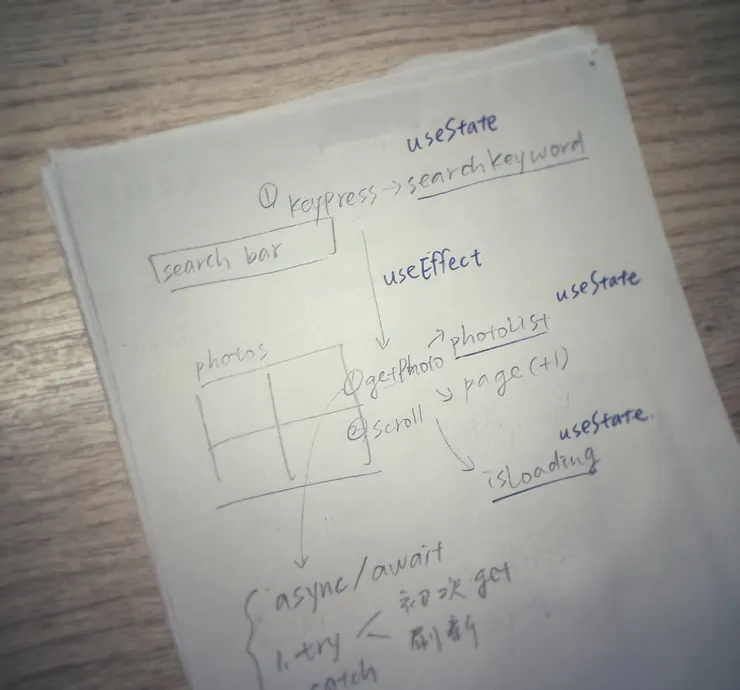 useState
① keypress → searchkeyword
search bar
useEffect
useState
photos
↗ photoList
① getPhoto
↘ page (+1)
② scroll
useState.
isLoading
async/await
1. try < 初次 get
刷新
catch